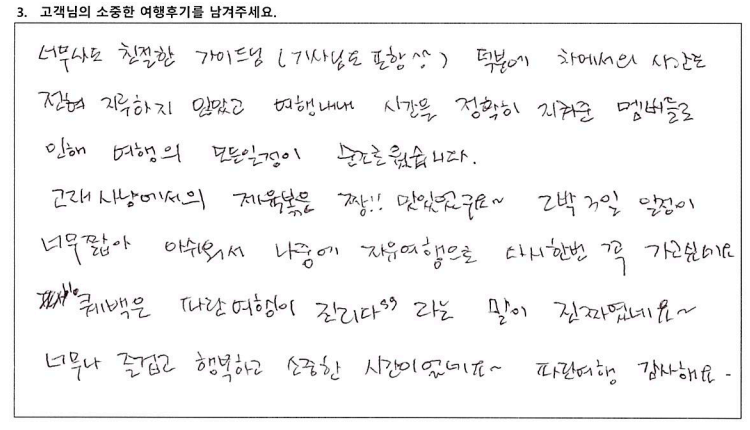 3. 고객님의 소중한 여행후기를 남겨주세요.
너무나도 친절한 가이드님 (기사님도 포함^^) 덕분에 차에서의 시간도
전혀 지루하지 않았고 여행내내 시간을 정확히 지켜준 멤버들로
인해 여행의 모든일정이 순조로웠습니다.
고래사냥에서의 제육볶음 짱!! 맛있었구요~ 2박 3일 일정이
너무짧아 아쉬워서 나중에 자유여행으로 다시한번 꼭 가고싶네요
"퀘백은 파란여행이 진리다" 라는 말이 진짜였네요~
너무나 즐겁고 행복하고 소중한 시간이었네요~ 파란여행 감사해요-